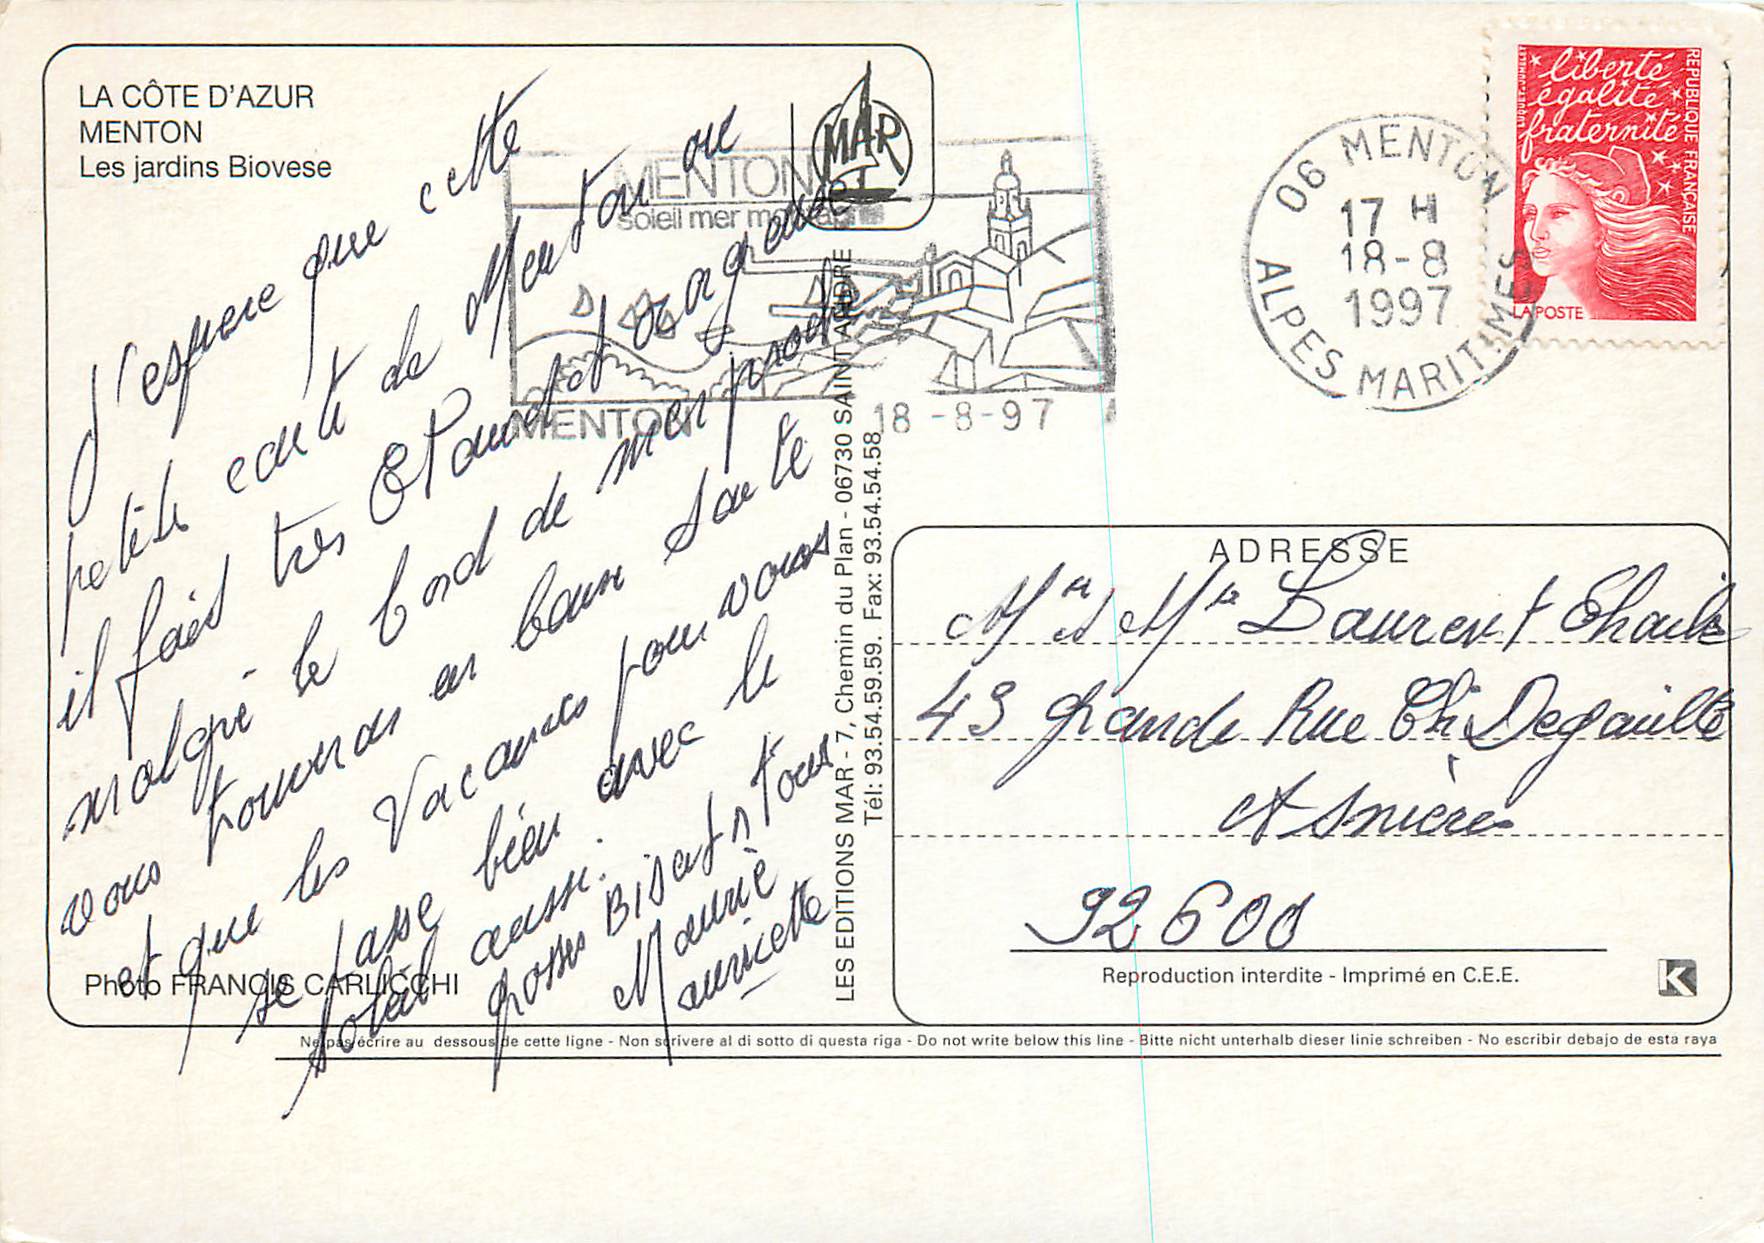 LA CÔTE D'AZUR
MENTON
Les jardins Biovese
J'espere que cette
petite carte de Menton ou
il fais tres chaud et orageuse
malgré le bord de mer
vous trouveras en bonne sante
et que les vacances pour vous
se passe bien avec le
soleil aussi.
grosses Bisous a tous
Mauricette
Photo FRANCIS CARLICCHI
MAR
LES EDITIONS MAR - 7, Chemin du Plan - 06730 SAINT ANDRE
Tél: 93.54.59.59. Fax: 93.54.54.58
MENTON
soleil mer
MENTON
18 -8-97
06 MENTON
17 H
18-8
1997
ALPES MARITIMES
liberté
égalité
fraternité
REPUBLIQUE FRANÇAISE
LA POSTE
ADRESSE
Mr et Me Laurent Charles
43 grande Rue Ch Degaulle
Asnières
92600
Reproduction interdite - Imprimé en C.E.E.
K
Ne pas écrire au dessous de cette ligne - Non scrivere al di sotto di questa riga - Do not write below this line - Bitte nicht unterhalb dieser linie schreiben - No escribir debajo de esta raya